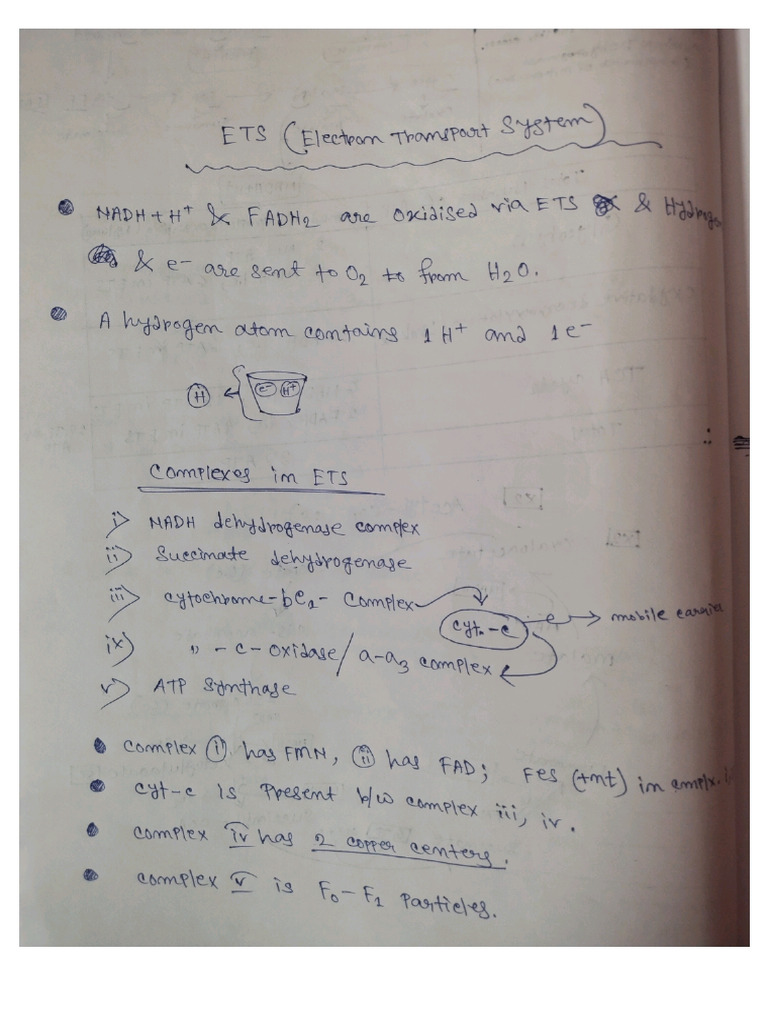 ETS (Electron Transport System)
NADH + H⁺ & FADH₂ are oxidised via ETS & Hydrogen
& e⁻ are sent to O₂ to from H₂O.
A hydrogen atom contains 1 H⁺ and 1 e⁻
H e⁻ H⁺
Complexes in ETS
i) NADH dehydrogenase complex
ii) Succinate dehydrogenase
iii) cytochrome-bc₁- complex
cyt-c e⁻ → mobile carrier
ix) " -c-oxidase/a-a₃ complex
v) ATP synthase
complex i has FMN, ii has FAD; Fes (+nt) in
cyt-c is Present b/w complex iii, iv.
complex iv has 2 copper centers.
complex v is F₀-F₁ Particles.